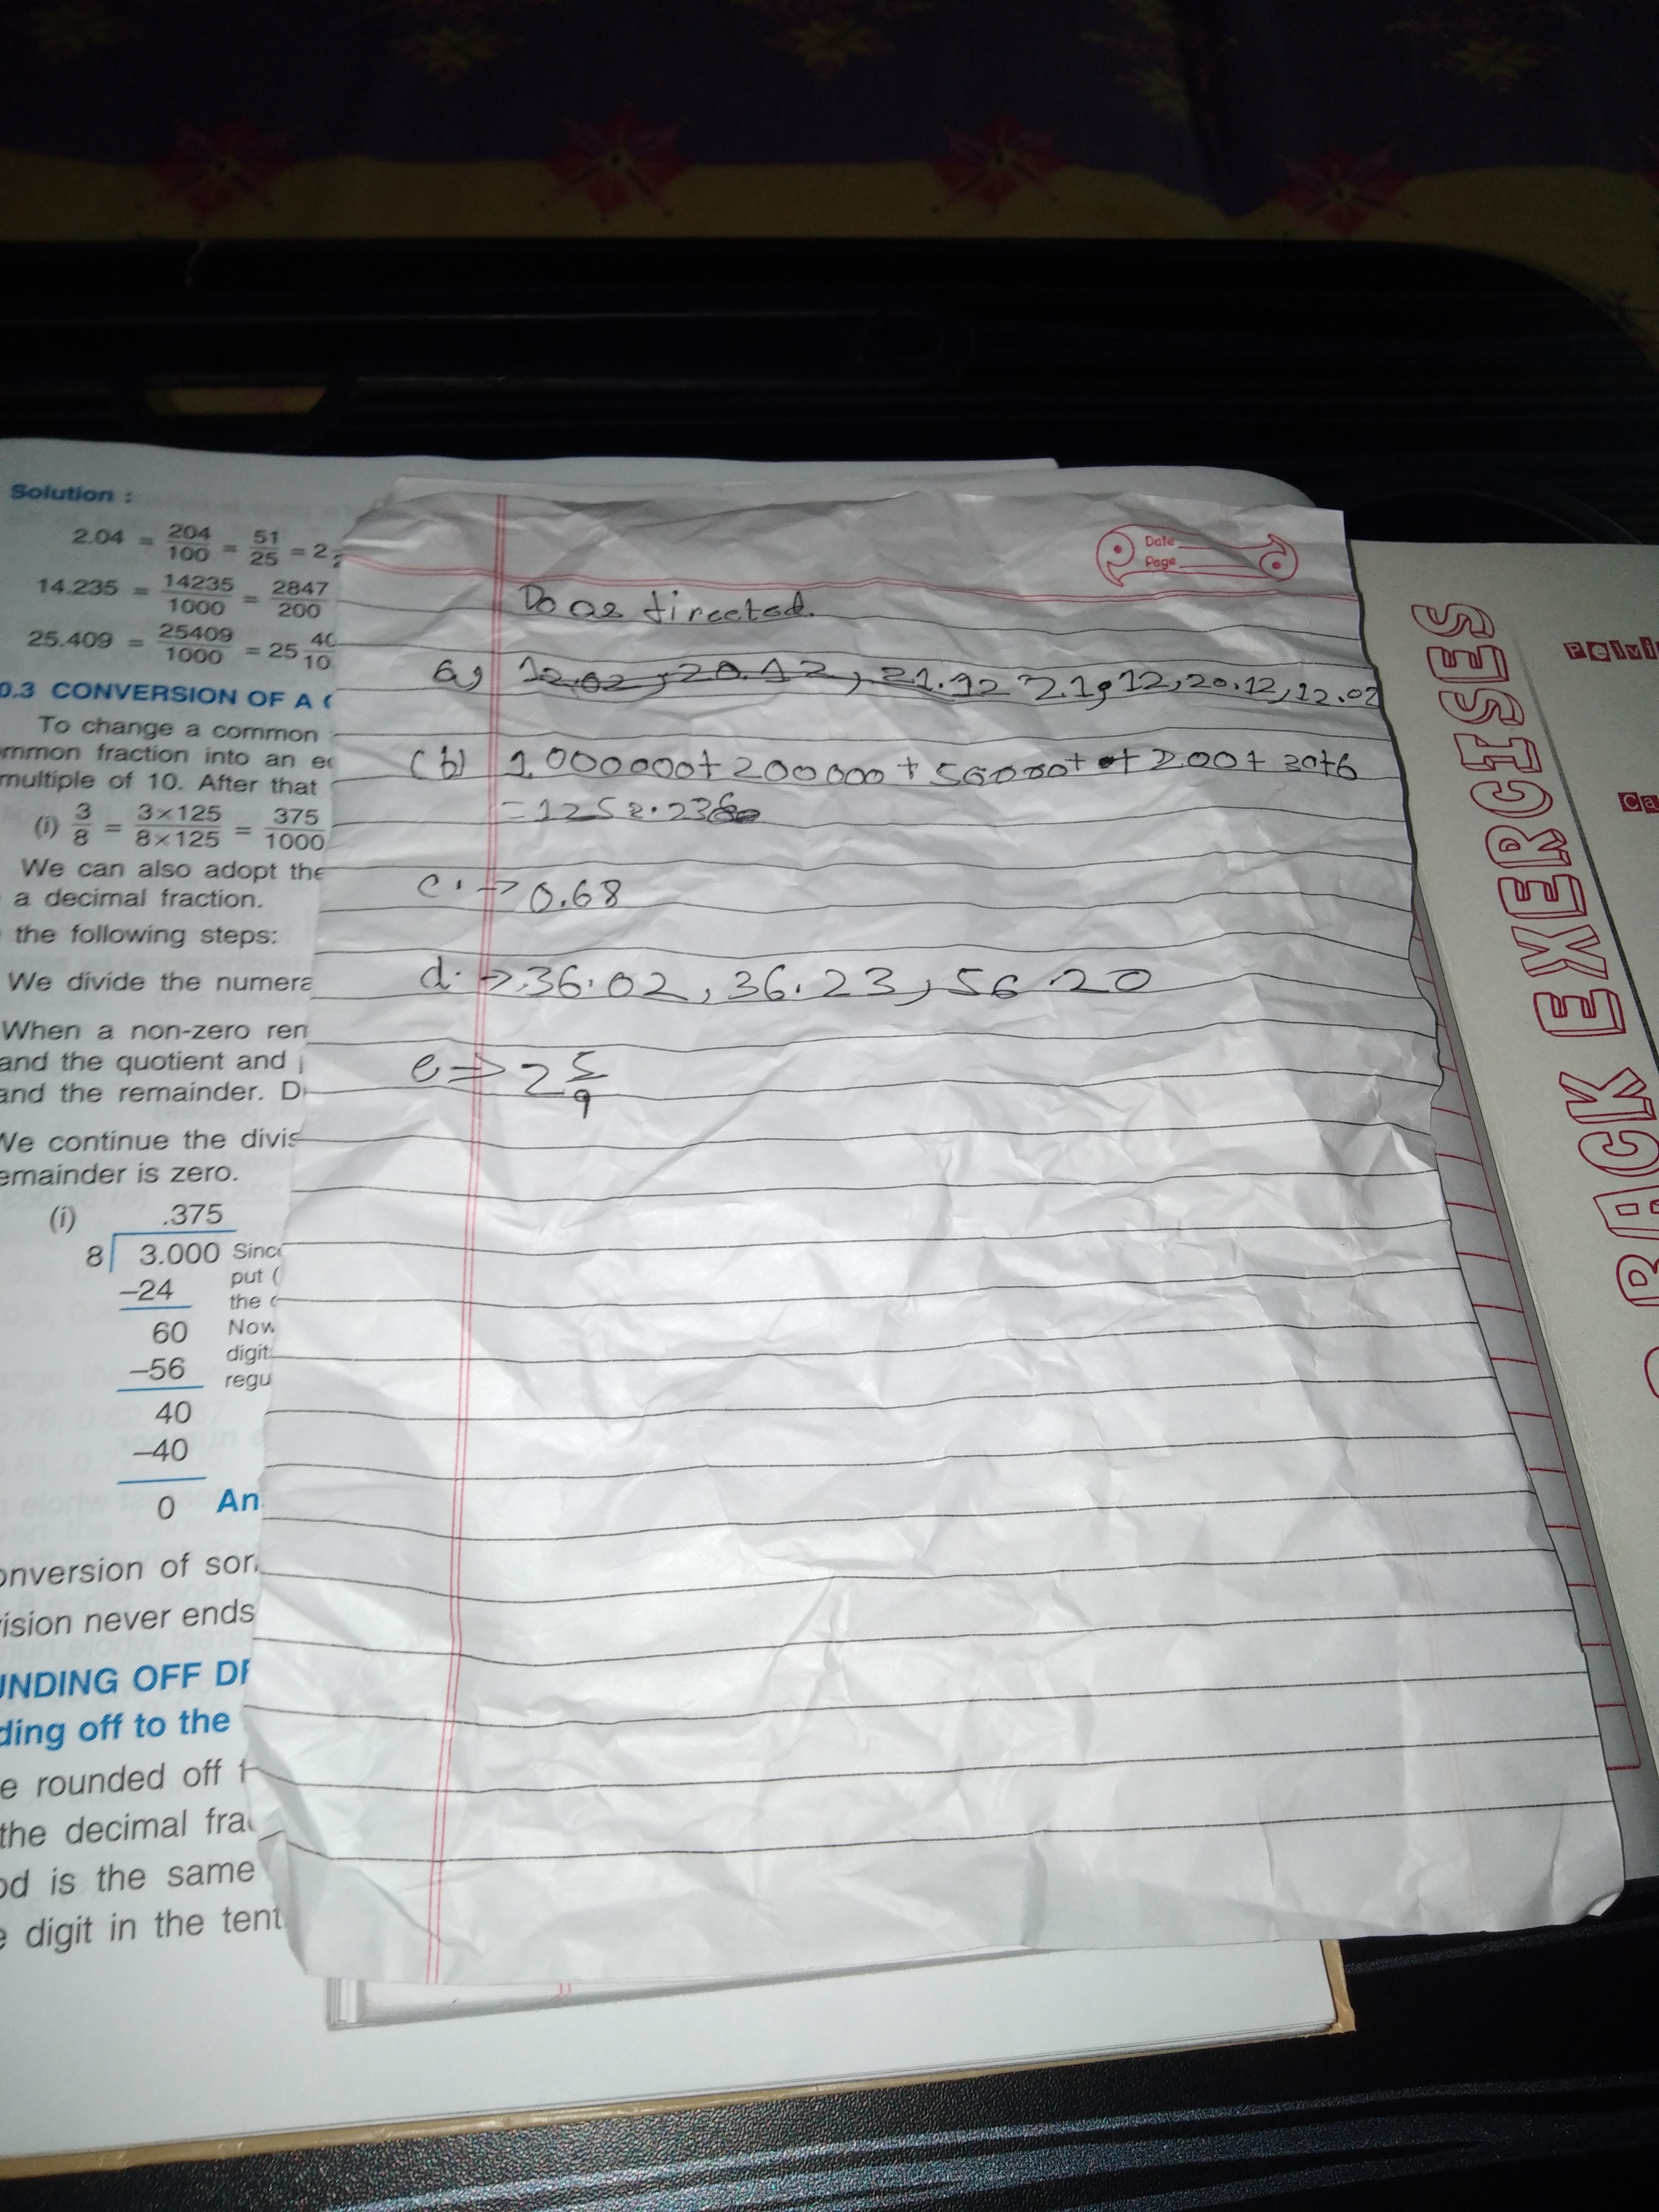 Solution :
2.04 = 204/100 = 51/25 = 2
14.235 = 14235/1000 = 2847/200
25.409 = 25409/1000 = 25 40/10
0.3 CONVERSION OF A
To change a common
mmon fraction into an
multiple of 10. After that
(i) 3/8 = 3×125/8×125 = 375/1000
We can also adopt the
a decimal fraction.
the following steps:
We divide the numera
When a non-zero
and the quotient and
and the remainder.
We continue the
emainder is zero.
(i) .375
8 3.000 Since
put (
–24
the
60 Now
digit
–56
regu
40
–40
0 An
onversion of
vision never ends
UNDING OFF
ding off to the
e rounded off
the decimal
od is the same
e digit in the tent
Date
Page
Do as directed.
a) 12.02, 20.12, 21.12 21,12, 20.12, 12.02
(b)
c. → 0.68
d. → 36.02, 36.23, 56.20
e → 2 5/9
RACK EXERCISES
Pelvi
Ca